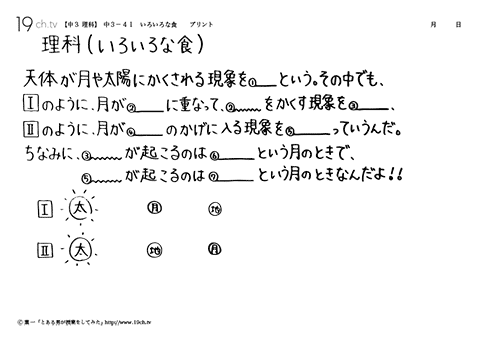 19ch.tv 【中3 理科】 中3-41 いろいろな食 プリント 月 日
理科(いろいろな食)
天体が月や太陽にかくされる現象を①___という。その中でも、
Ⅰのように、月が②___に重なって、②___をかくす現象を③___、
Ⅱのように、月が④___のかげに入る現象を⑤___っていうんだ。
ちなみに、③___が起こるのは⑥___という月のときで、
⑤___が起こるのは⑦___という月のときなんだよ!!
Ⅰ 太 月 地
Ⅱ 太 地 月
© 葉一「とある男が授業をしてみた」http://www.19ch.tv